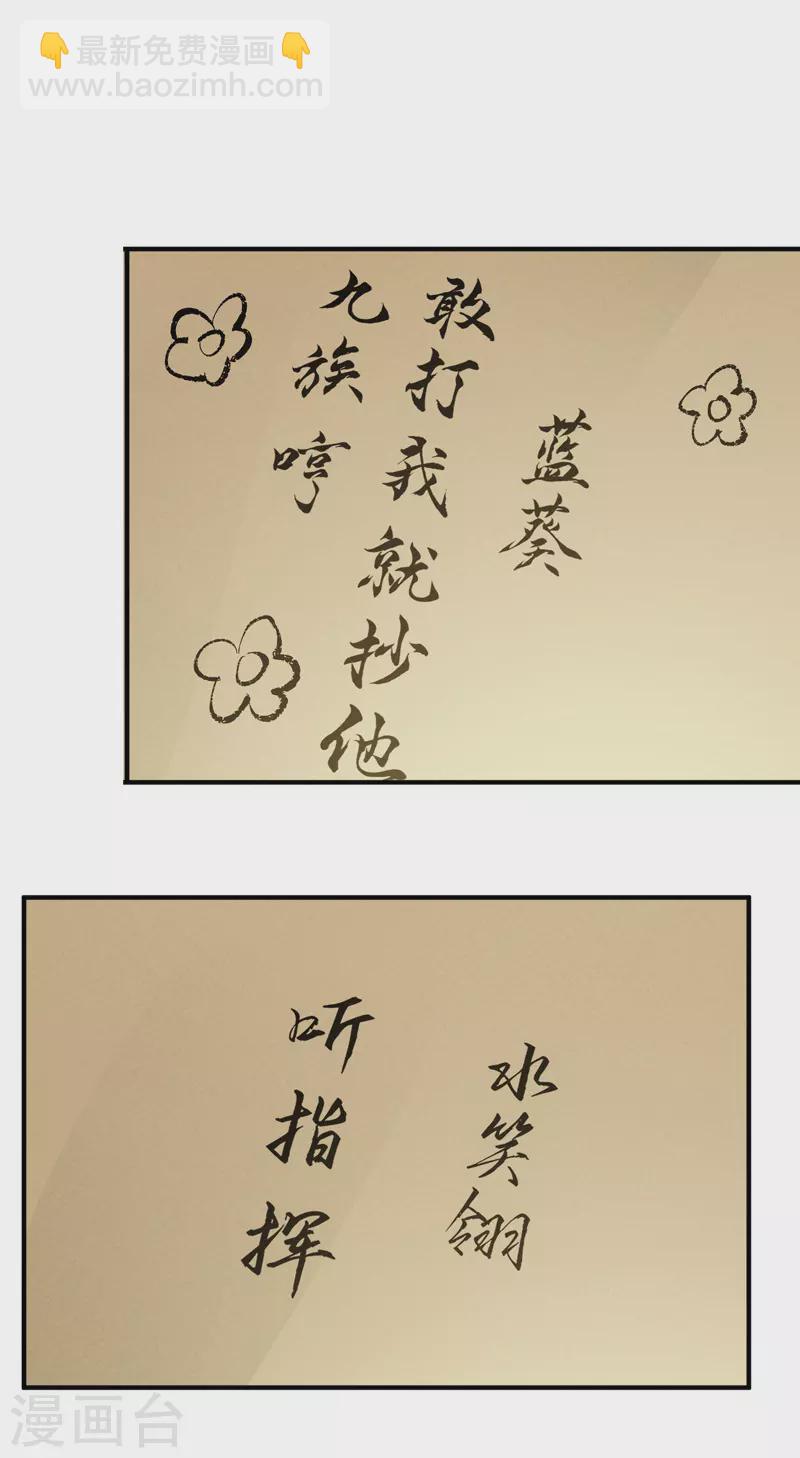 👇最新免费漫画👇
www.baozimh.com
蓝葵
敢打我就抄他
九族哼
水笑翎
听指挥
漫画台